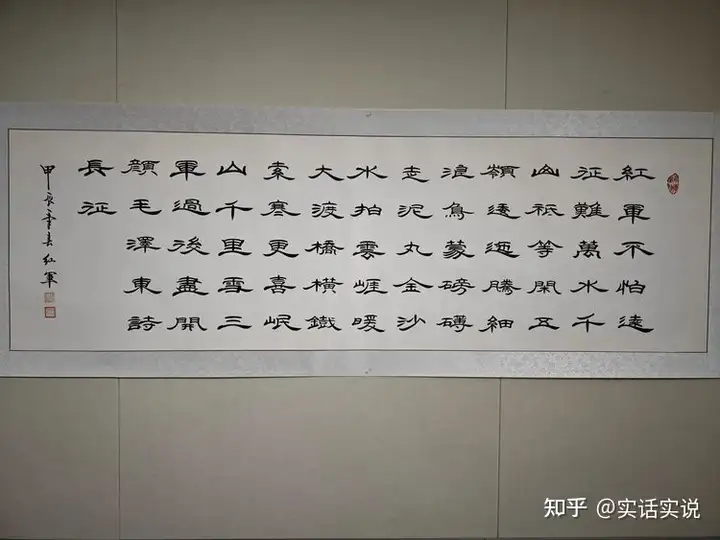 紅軍不怕遠
征難萬水千
山祇等閑五
嶺逶迤騰細
浪烏蒙磅礴
走泥丸金沙
水拍雲崖暖
大渡橋橫鐵
索寒更喜岷
山千里雪三
軍過後盡開
顏毛澤東詩
長征
甲辰季春
知乎 @实话实说